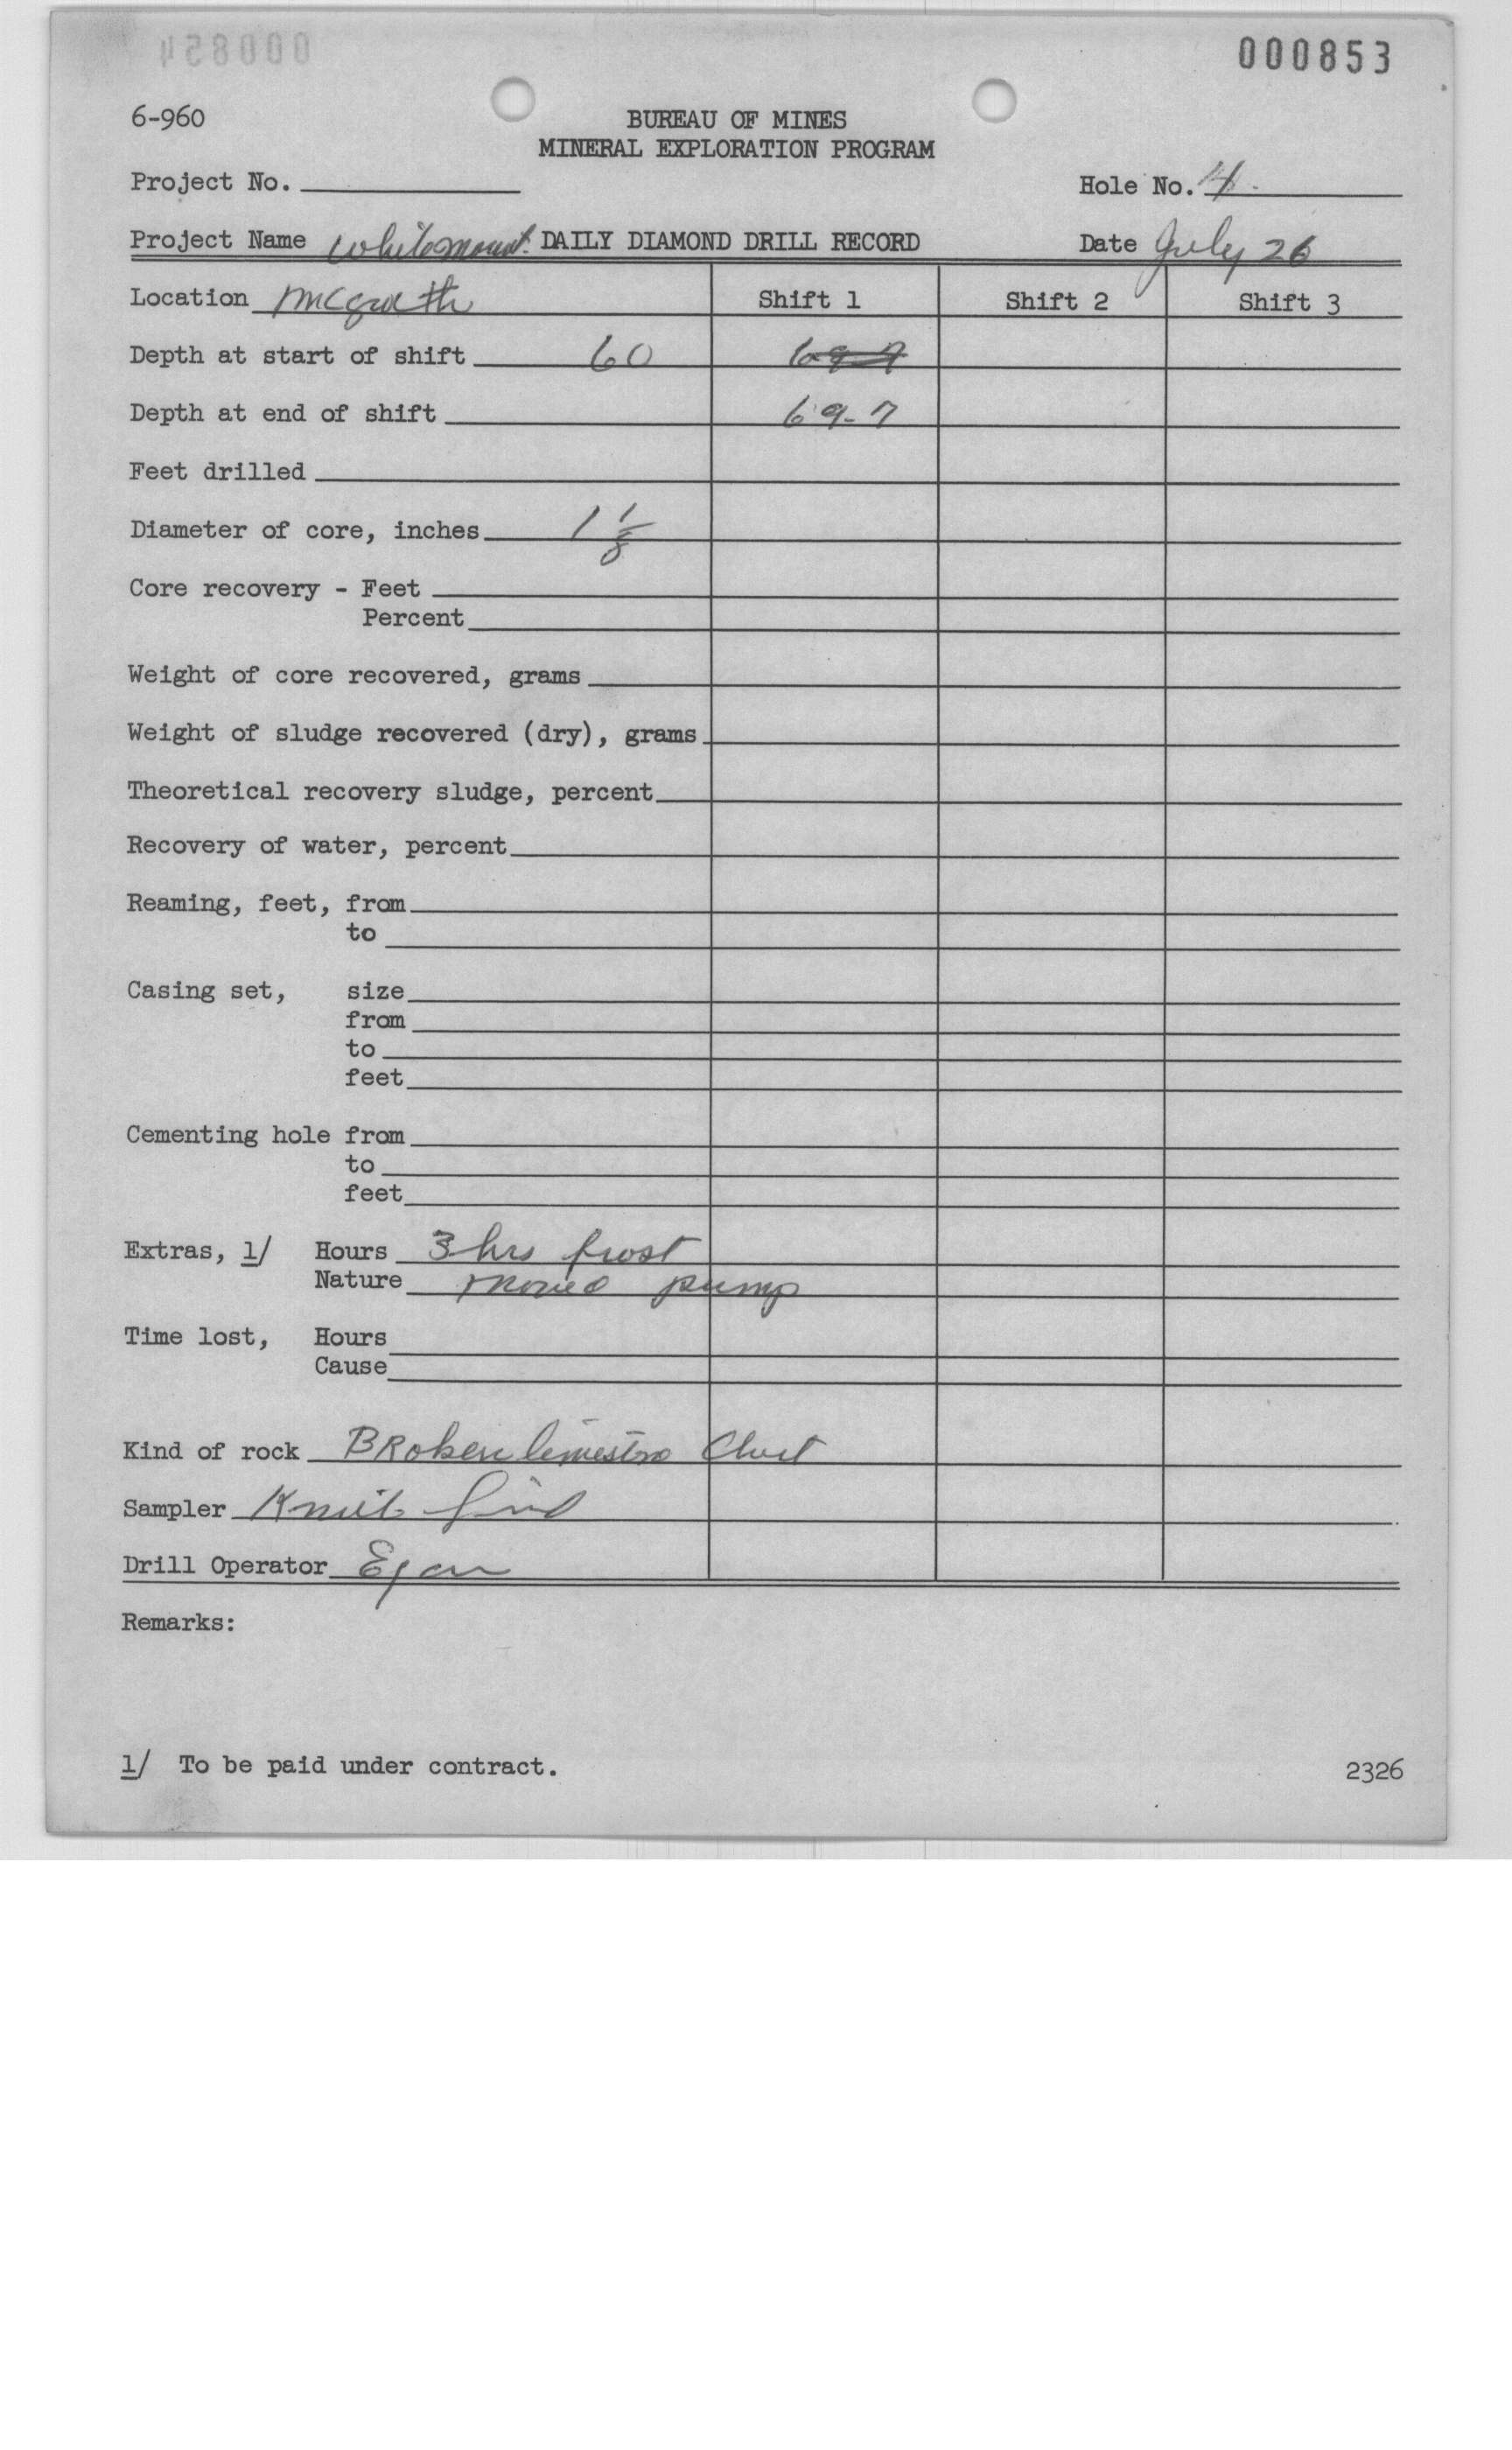 000853
6-960
BUREAU OF MINES
MINERAL EXPLORATION PROGRAM
Project No.
Hole No. 4
Project Name Whitemount. DAILY DIAMOND DRILL RECORD Date July 26
Location McGrath Shift 1 Shift 2 Shift 3
Depth at start of shift 60
Depth at end of shift 69-7
Feet drilled
Diameter of core, inches 1 1/8
Core recovery - Feet
Percent
Weight of core recovered, grams
Weight of sludge recovered (dry), grams
Theoretical recovery sludge, percent
Recovery of water, percent
Reaming, feet, from
to
Casing set, size
from
to
feet
Cementing hole from
to
feet
Extras, 1/ Hours 3 hrs frost
Nature Moved pump
Time lost, Hours
Cause
Kind of rock Broken limestone Chert
Sampler
Drill Operator Egan
Remarks:
1/ To be paid under contract.
2326